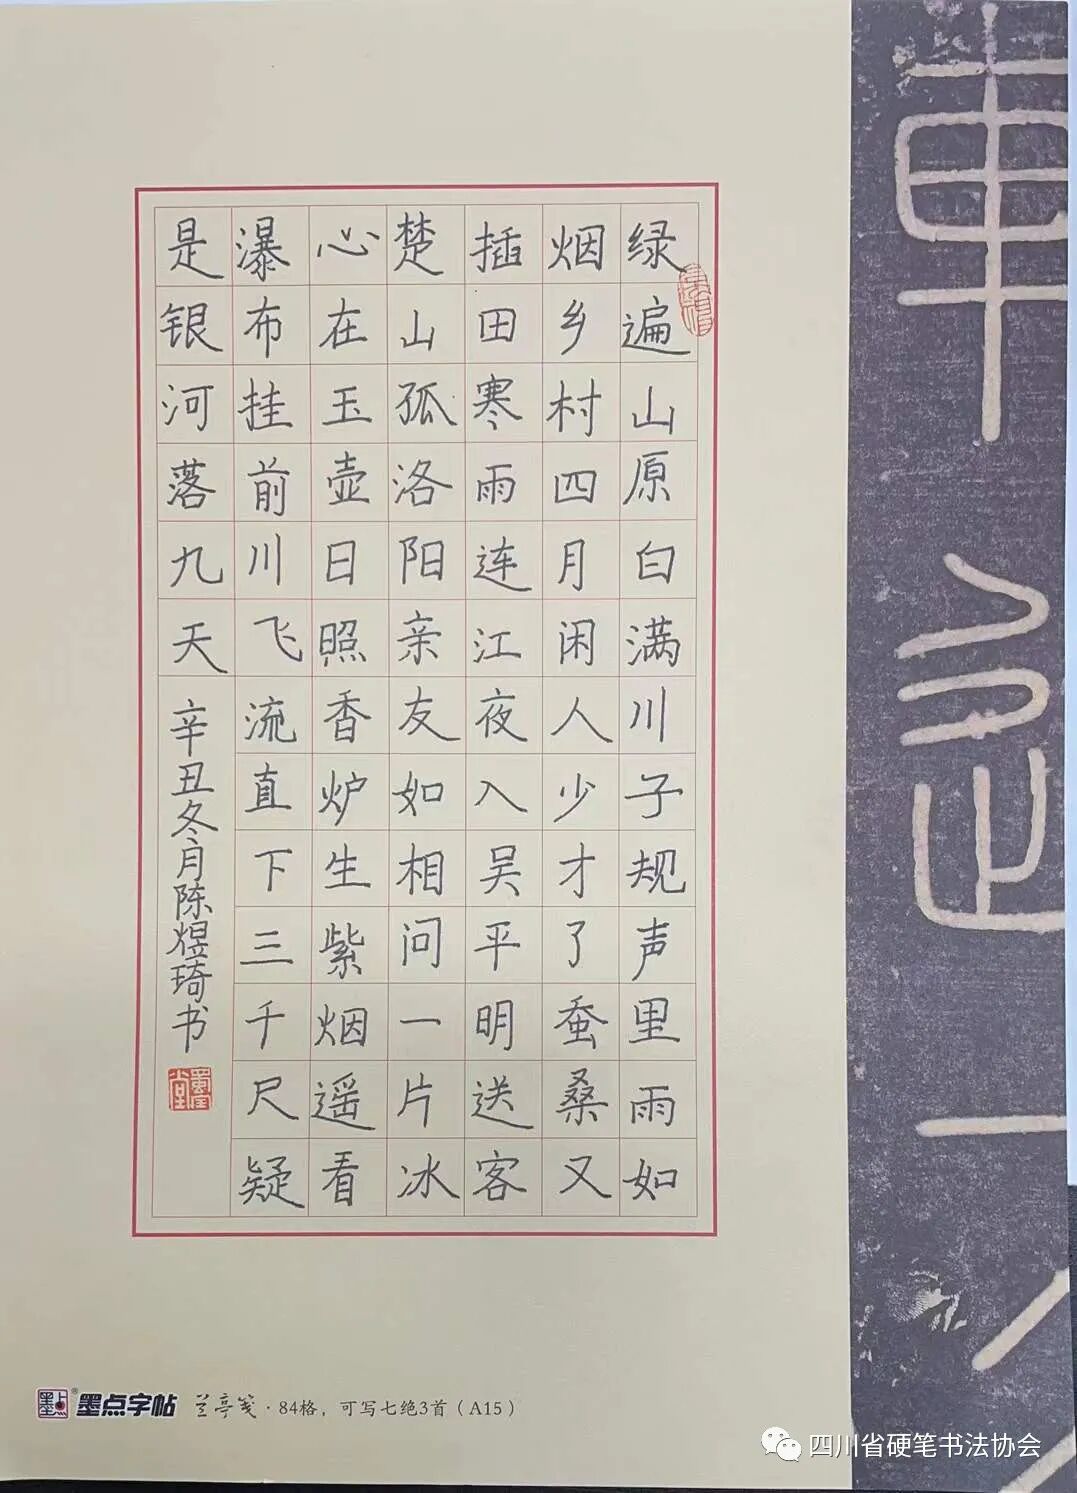 绿遍山原白满川子规声里雨如
烟乡村四月闲人少才了蚕桑又
插田寒雨连江夜入吴平明送客
楚山孤洛阳亲友如相问一片冰
心在玉壶日照香炉生紫烟遥看
瀑布挂前川飞流直下三千尺疑
是银河落九天
辛丑冬月陈煜琦书
墨点字帖 兰亭笺·84格，可写七绝3首（A15）
四川省硬笔书法协会